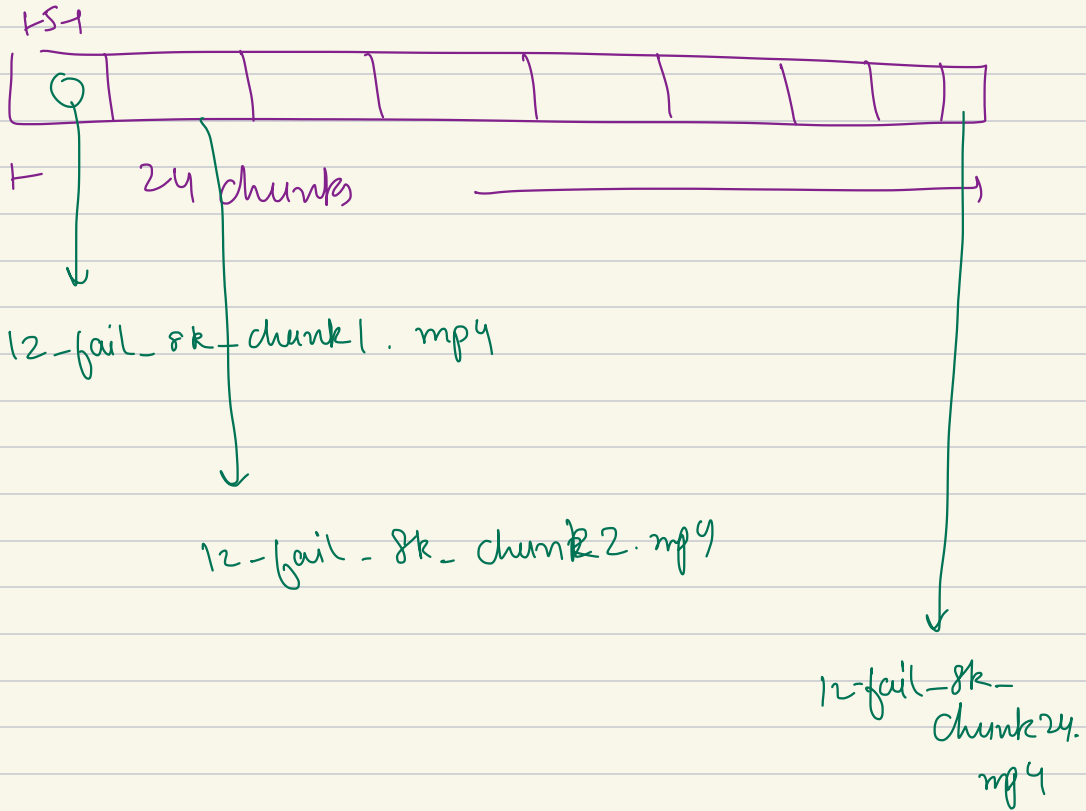 5
24 chunks
12-fail_8k_chunk1.mp4
12-fail_8k_chunk2.mp4
12-fail_8k_
chunk24.
mp4